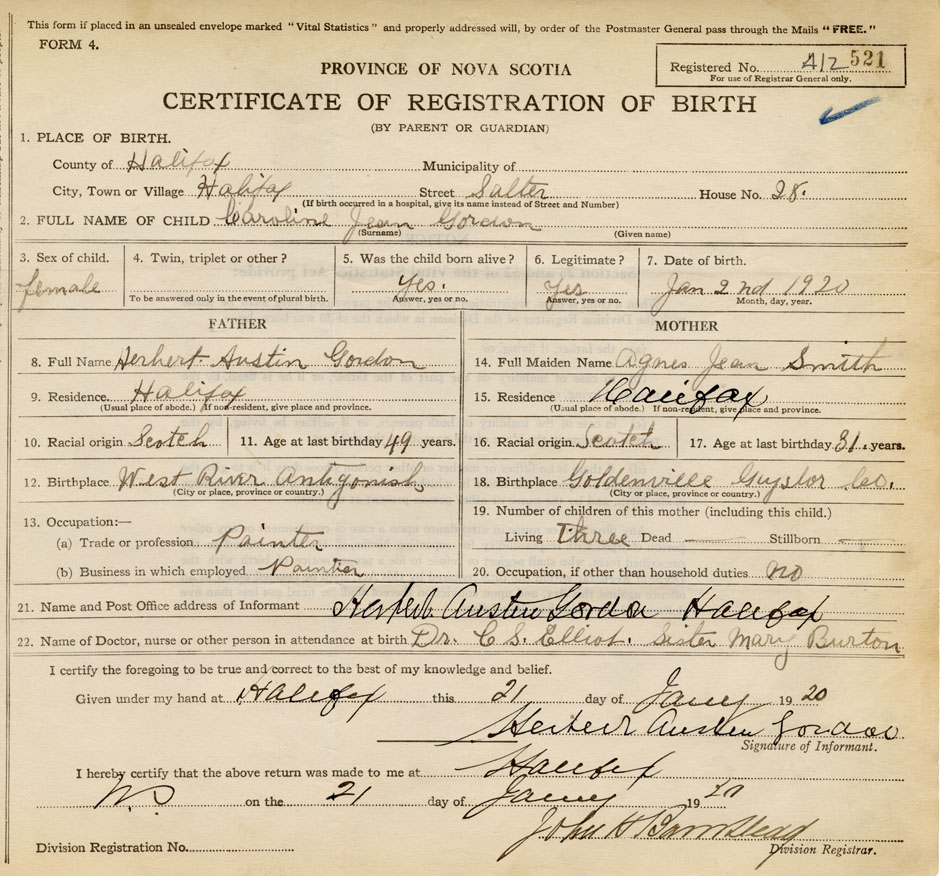 This form if placed in an unsealed envelope marked "Vital Statistics" and properly addressed will, by order of the Postmaster General pass through the Mails "FREE."
FORM 4.
Registered No. 412 521
For use of Registrar General only.
PROVINCE OF NOVA SCOTIA
CERTIFICATE OF REGISTRATION OF BIRTH
(BY PARENT OR GUARDIAN)
1. PLACE OF BIRTH.
County of Halifax Municipality of
City, Town or Village Halifax Street Salter House No. 28.
(If birth occurred in a hospital, give its name instead of Street and Number)
2. FULL NAME OF CHILD Caroline Jean Gordon
(Surname) (Given name)
3. Sex of child. 4. Twin, triplet or other? 5. Was the child born alive? 6. Legitimate? 7. Date of birth.
female Yes. Yes Jan 2nd 1920
To be answered only in the event of plural birth. Answer, yes or no. Answer, yes or no. Month, day, year.
FATHER MOTHER
8. Full Name Herbert Austin Gordon 14. Full Maiden Name Agnes Jean Smith
9. Residence Halifax 15. Residence Halifax
(Usual place of abode.) If non-resident, give place and province. (Usual place of abode.) If non-resident, give place and province.
10. Racial origin Scotch 11. Age at last birthday 49 years. 16. Racial origin Scotch 17. Age at last birthday 31 years.
12. Birthplace West River Antigonish 18. Birthplace Goldenville Guysbor Co.
(City or place, province or country.) (City or place, province or country.)
13. Occupation:— 19. Number of children of this mother (including this child.)
(a) Trade or profession Painter Living Three Dead — Stillborn —
(b) Business in which employed Painter 20. Occupation, if other than household duties no
21. Name and Post Office address of Informant Herbert Austin Gordon Halifax
22. Name of Doctor, nurse or other person in attendance at birth Dr. C S. Elliot. Sister Mary Burton
I certify the foregoing to be true and correct to the best of my knowledge and belief.
Given under my hand at Halifax this 21 day of Jany 1920
Herbert Austin Gordon
Signature of Informant.
I hereby certify that the above return was made to me at Halifax
NS on the 21 day of Jany 1920
John H Barnstead
Division Registration No. Division Registrar.